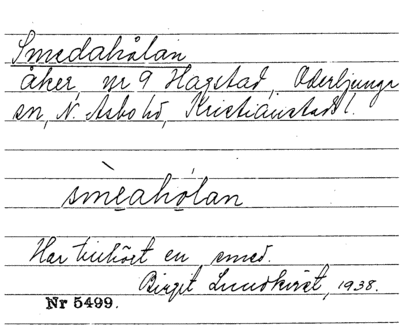 Smedahålan
åker, nr 9 Hagstad, Oderljunga
sn, N. Åsbo hd, Kristianstads l.
smèahólan
Har tillhört en smed.
Birgit Lundkvist, 1938.
Nr 5499.